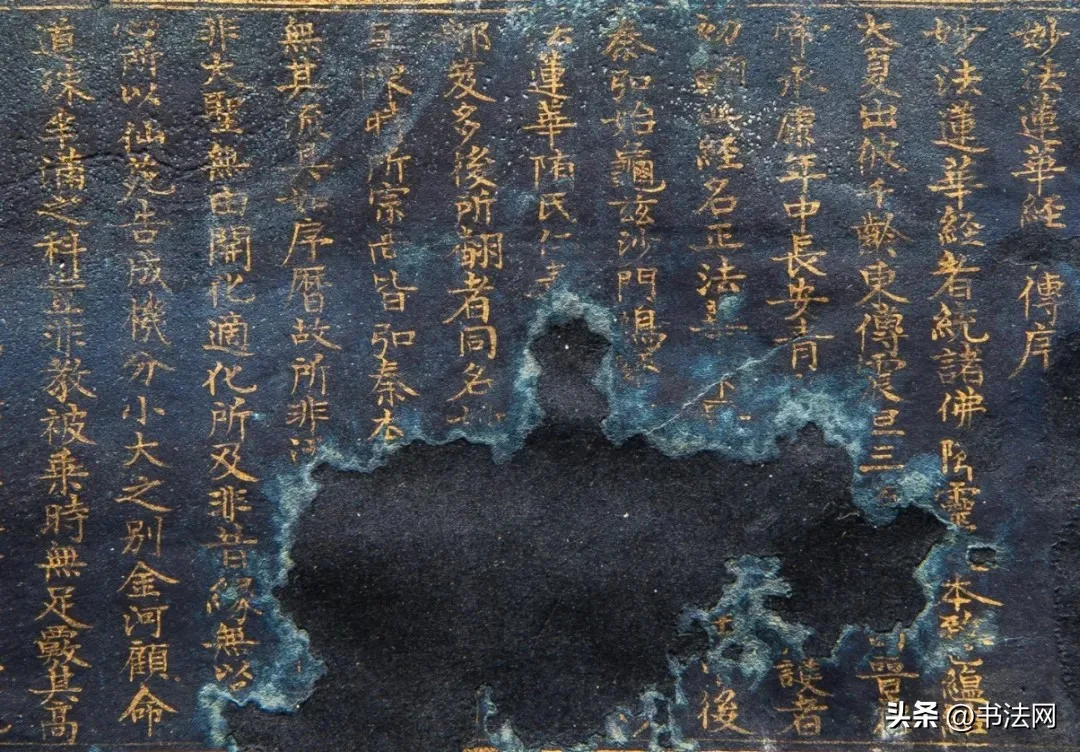 妙法蓮華經 傳序
妙法蓮華經者統諸佛降靈 本致 蘊
大夏出彼千齡東傳震旦三 晉
帝永康年中長安青 護者
初 經名正法華 後
秦弘始龜茲沙門鳩
法蓮華隋氏仁壽
那笈多後所翻者同名妙
互陳時所宗尚皆弘秦本
無其流具如序曆故所非述
非大聖無由開化適化所及非昔緣無以
心所以仙苑告成機分小大之別金河顧命
道殊半滿之科豈非教被乘時無足覈其高
头条 @书法网